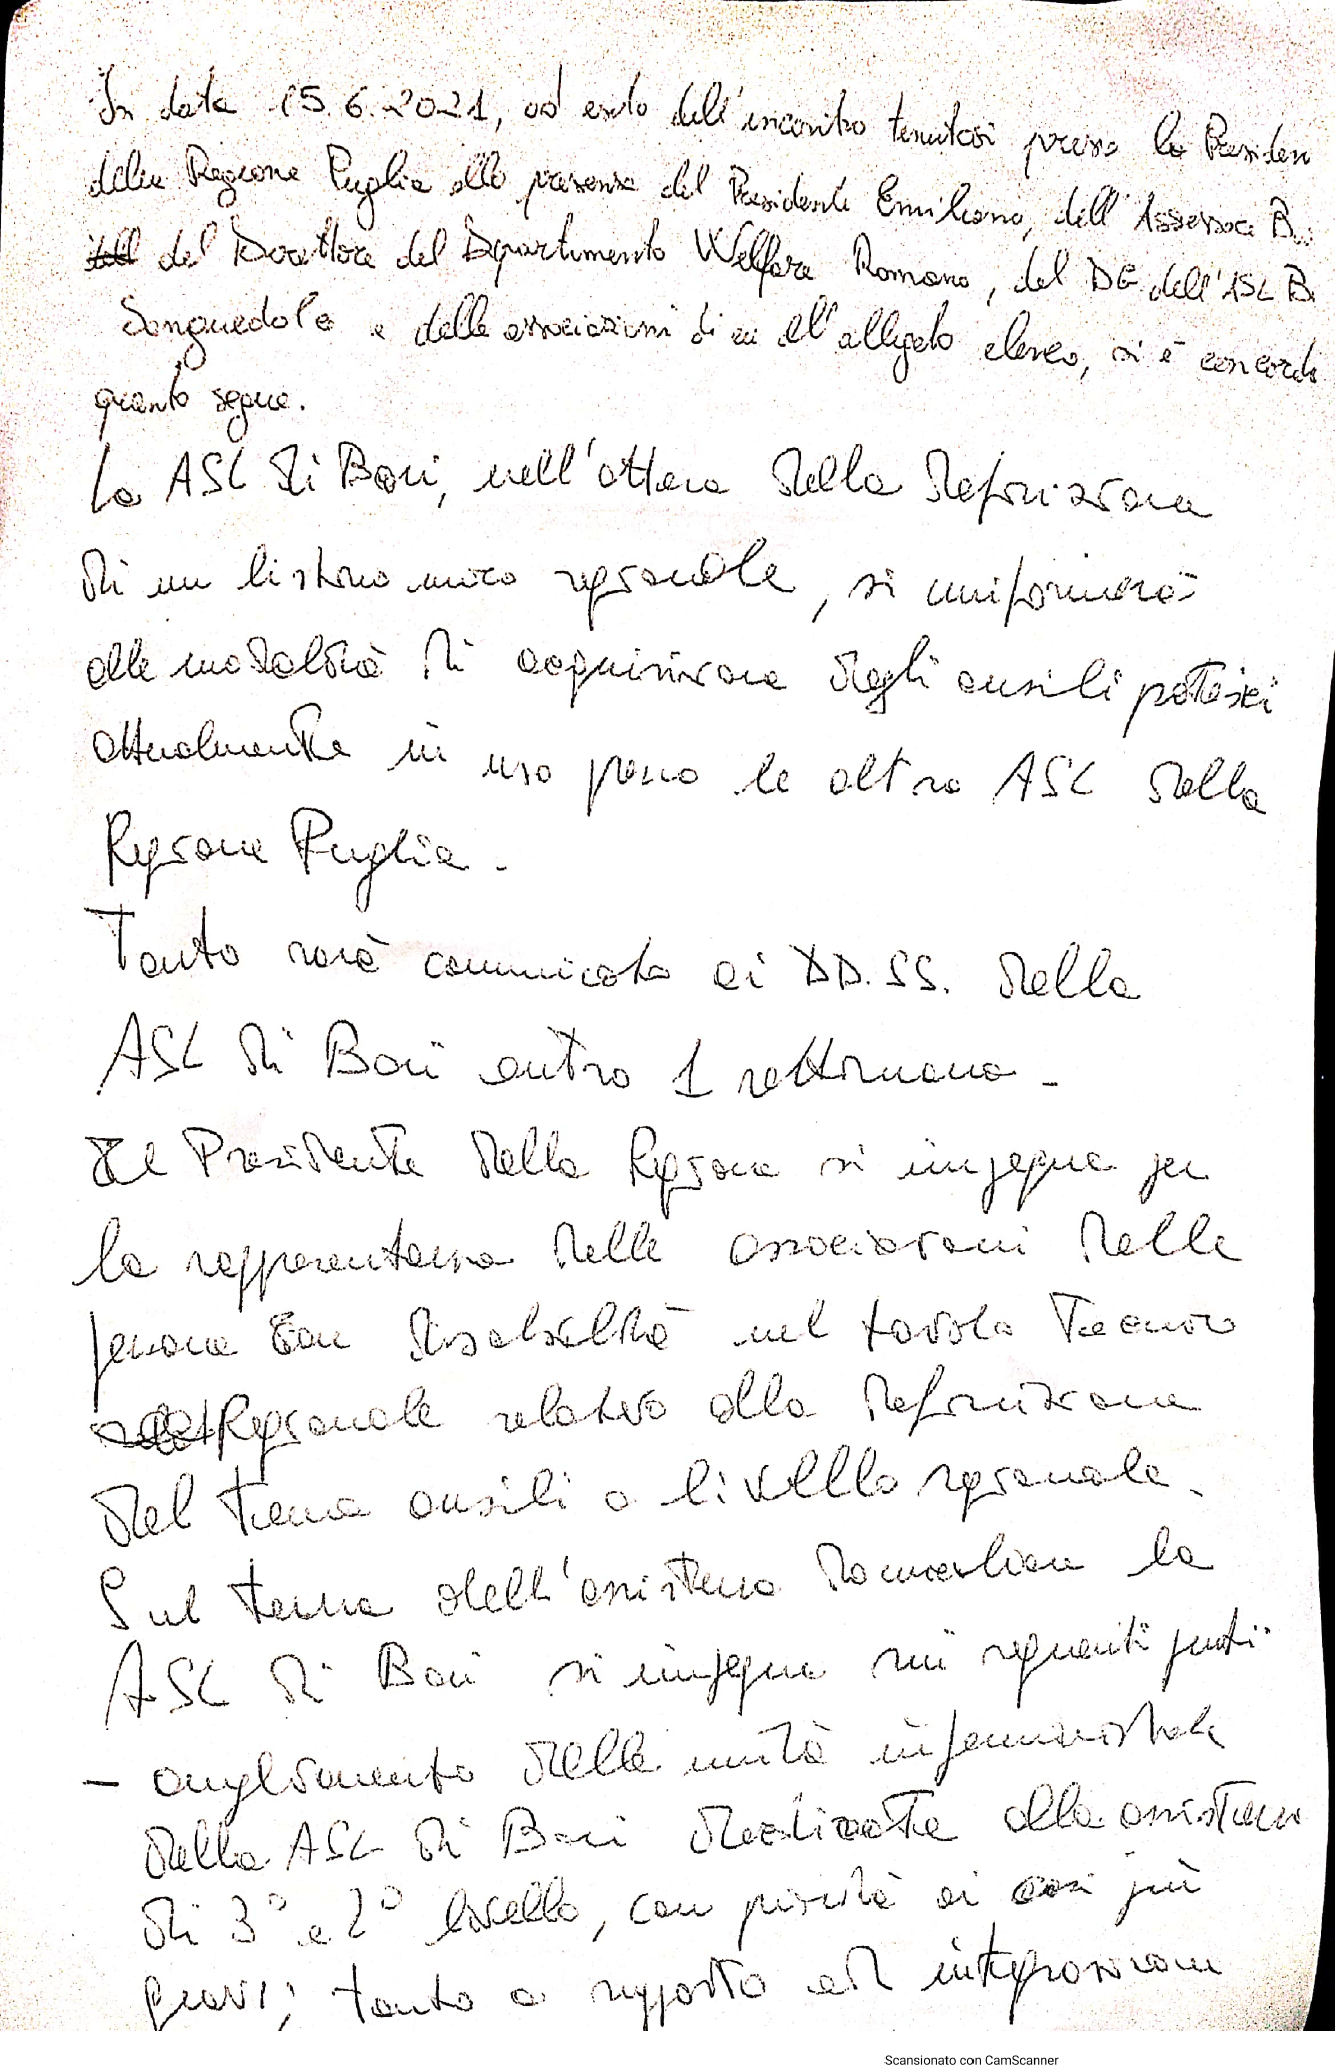 In data 15.6.2021, ad esito dell'incontro tenutosi presso la Presiden
della Regione Puglia alla presenza del Presidente Emiliano, dell'Assessore B
del Direttore del Dipartimento Welfare Romano, del DG dell'ASL B
Sanguedolce e delle associazioni di cui all'allegato elenco, si è concorda
quanto segue.
La ASL di Bari, nell'ottica della definizione
di un listino unico regionale, si uniformerà
alle modalità di acquisizione degli ausili protesici
attualmente in uso presso le altre ASL della
Regione Puglia.
Tanto sarà comunicato ai DD.SS. della
ASL di Bari entro 1 settimana -
Il Presidente della Regione si impegna per
la rappresentanza delle associazioni delle
persone con disabilità nel tavolo tecnico
Regionale relativo alla definizione
del tema ausili a livello regionale.
Sul tema dell'assistenza domiciliare la
ASL di Bari si impegna sui seguenti punti:
- ampliamento delle unità infermieristiche
della ASL di Bari dedicate alla assistenza
di 3° e 2° livello, con priorità ai casi più
gravi; tanto a supporto ed integrazione
Scansionato con CamScanner